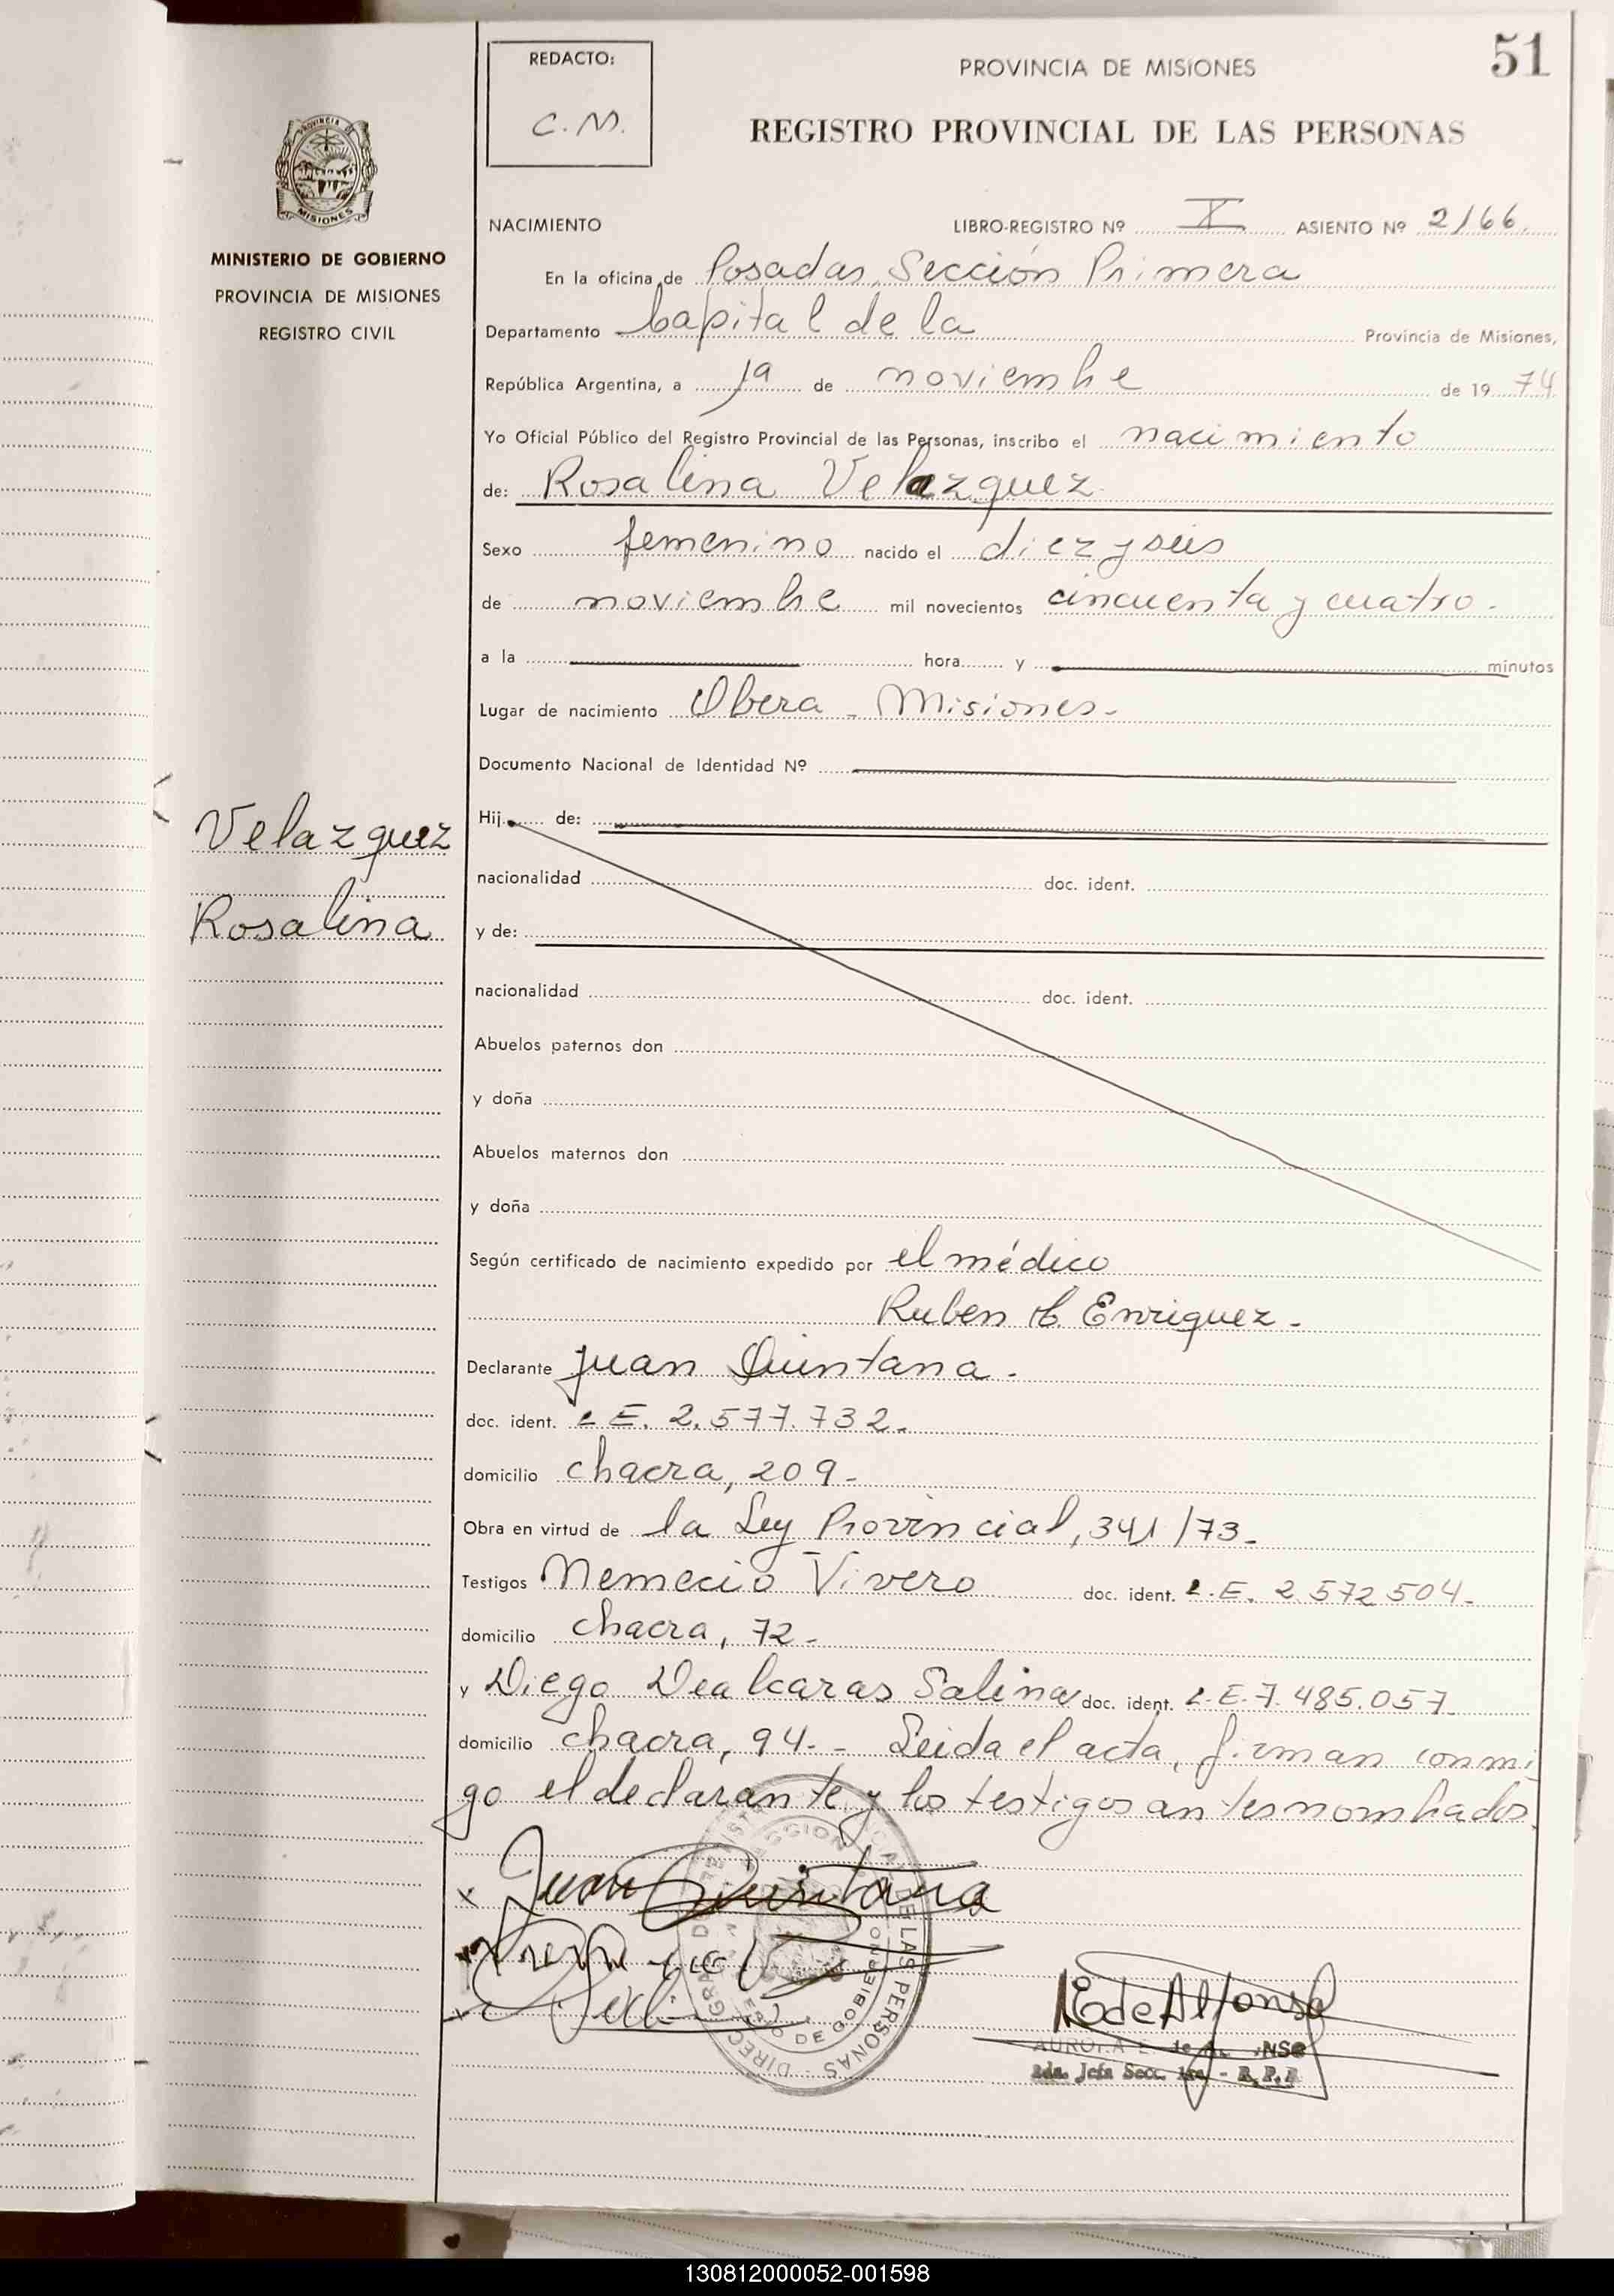 51
REDACTO:
C.M.
PROVINCIA DE MISIONES
REGISTRO PROVINCIAL DE LAS PERSONAS
PROVINCIA DE
MISIONES
MINISTERIO DE GOBIERNO
PROVINCIA DE MISIONES
REGISTRO CIVIL
NACIMIENTO LIBRO-REGISTRO Nº X ASIENTO Nº 2166.
En la oficina de Posadas, Sección Primera
Departamento Capital de la Provincia de Misiones,
República Argentina, a 1º de noviembre de 19 74
Yo Oficial Público del Registro Provincial de las Personas, inscribo el nacimiento
de: Rosalina Velazquez
Sexo femenino nacido el diez y seis
de noviembre mil novecientos cincuenta y cuatro.
a la hora y minutos
Lugar de nacimiento Obera - Misiones.-
Documento Nacional de Identidad Nº
Velazquez
Rosalina
Hij de:
nacionalidad doc. ident.
y de:
nacionalidad doc. ident.
Abuelos paternos don
y doña
Abuelos maternos don
y doña
Según certificado de nacimiento expedido por el médico
Ruben Enriquez.-
Declarante Juan Quintana.
doc. ident. L.E. 2.577.732.-
domicilio chacra, 209.-
Obra en virtud de la Ley Provincial, 341/73.-
Testigos Nemecio Vivero doc. ident. L.E. 2.572.504.-
domicilio chacra, 72.-
y Diego Dealcaras Salina doc. ident. L.E. 7.485.057
domicilio chacra, 94.- - Leida el acta, firman conmi
go el declarante y los testigos antes nombrados.
x Juan Quintana
DE LAS PERSONAS - DIREC
DE GOBIERNO
E de Alfonso
2da. Jefa Secc. 1ra. - R.P.P
130812000052-001598